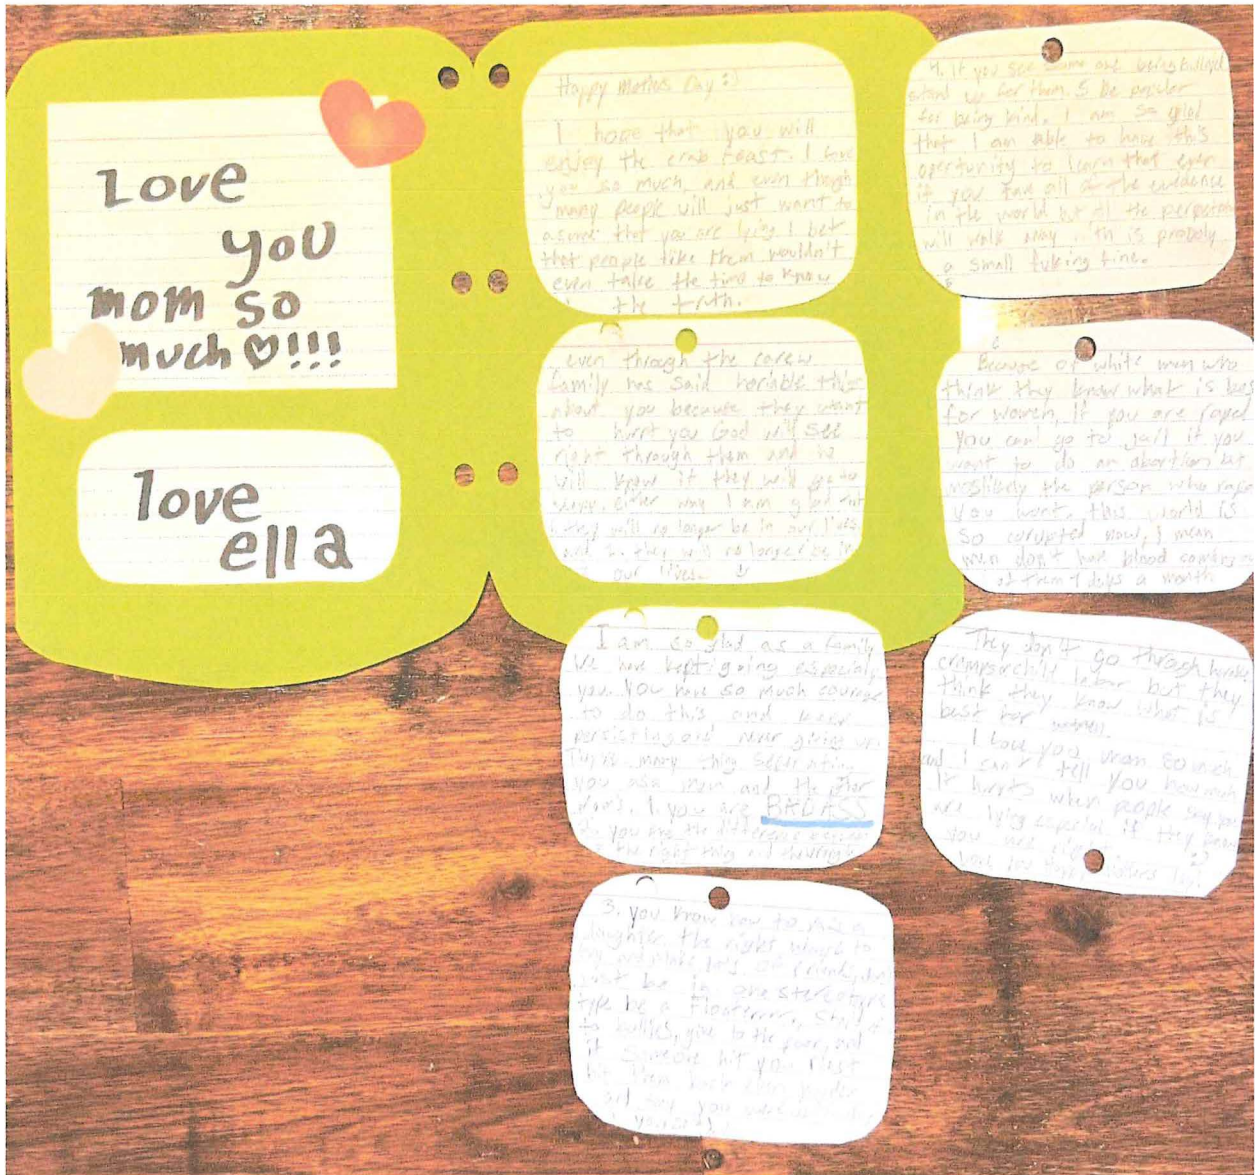 Love
you
mom so
much ♡!!!
love
ella
Happy Mothers Day :)
I hope that you will
enjoy the crab feast. I love
you so much, and even though
many people will just want to
asume that you are lying I bet
that people like them wouldn't
even take the time to know
the truth.
even through the carew
family has said horiable this
about you because they want
to hurrt you God will see
right through them and he
will know if they will
way. Either way I am glad
1. they will no longer be in our lives
and 2. they will no longer be in
our lives.
I am so glad as a family
We have kept going especialy
you. You have so much courage
to do this and keep
persisting and never giving up
many thig
you as a mom and the other
moms. 1. you are BADASS
2. you the difference
the right thing and the wrong
3. you know how to raise a
daughter the right
and make lots of friends,
just be in one stereotype
type be a Floaterrrr, stand
to bullies, give to the poor, and
if someone hit you
hit them back even harder
and say you
4. If you see some one being bullyed
stand up for them. 5. be popular
for being kind. I am so glad
that I am able to have this
opertunity to learn that even
if you all of the evidence
in the world but all the perpetrator
will walk away with is probaly
a small fuking fine.
Because of white men who
think they know what is best
for women, if you are raped
you can go to jail if you
want to do an abortion but
mostlikely the person who rape
you wont, this world is
so corupted now, I mean
men don't have blood coming
of them 7 days a month
They don't go through
cramps or child labor but they
think they know what is
best for women
I love you mom so much
and I can't tell you how much
it hurrts when people say you
are lying especial if they know
you